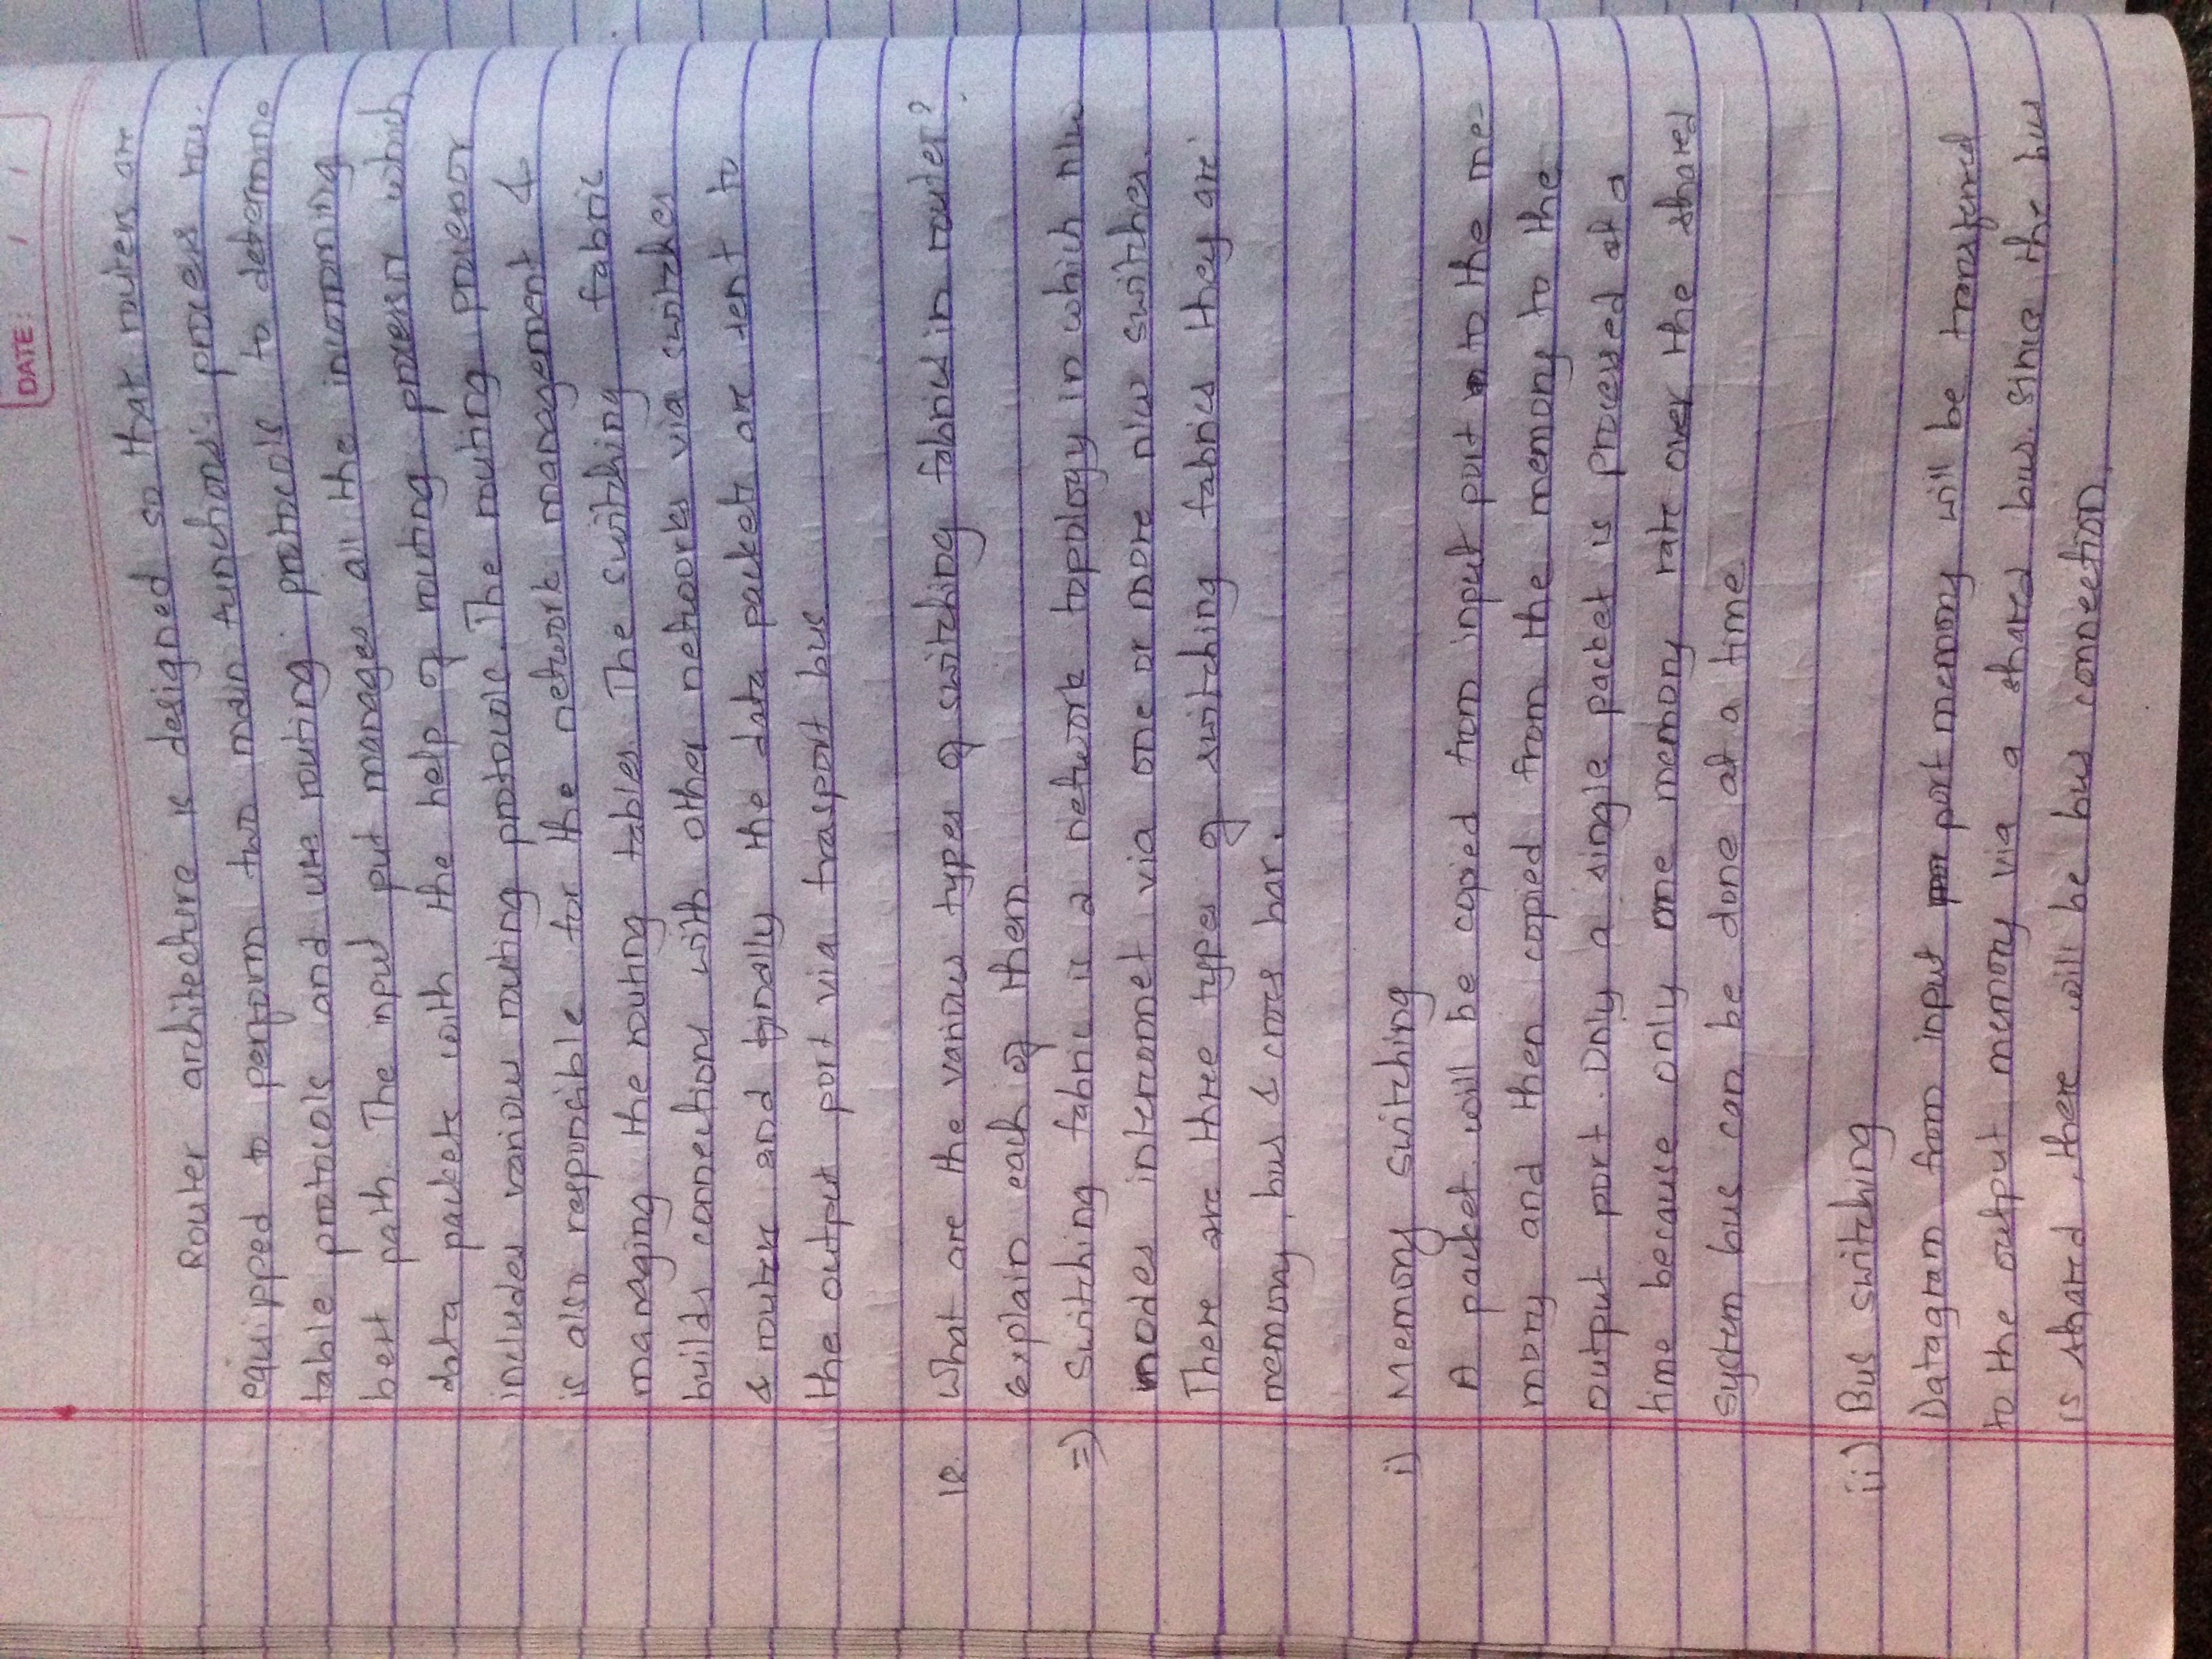 DATE: / /
Router architecture is designed so that routers are
equipped to perform two main functions: process rou-
table protocols and use routing protocols to determine
best path. The input put manages all the incomming
data packets with the help of routing processor which
includes various routing protocols. The routing processor
is also responsible for the network management &
managing the routing tables. The switching fabric
builds connections with other networks via switches
& routers and finally the data packets are sent to
the output port via trasport bus
12. What are the various types of switching fabrics in router?
explain each of them
=) Switching fabric is a network topology in which n/w
nodes interconnet via one or more n/w switches.
There are three types of switching fabrics they are:
memory, bus & cross bar.
i) Memory switching
A packet will be copied from input port to the me-
mory and then copied from the memory to the
output port. Only a single packet is processed at a
time because only one memory rate over the shared
system bus can be done at a time
ii) Bus switching
Datagram from input port memory will be transferred
to the output memory via a shared bus. Since the bus
is shared, there will be bus connection.